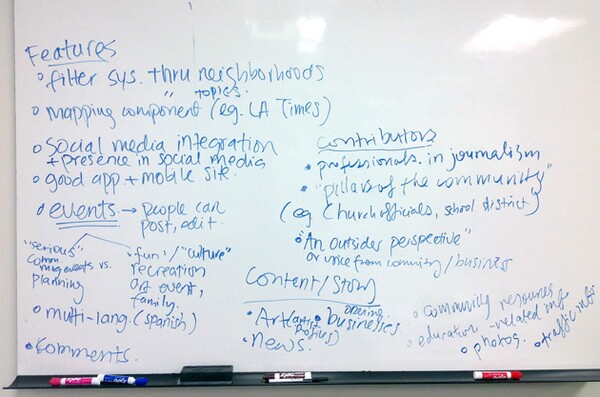 Features
filter sys. thru neighborhoods
" topics.
mapping component (eg. LA Times)
social media integration
+ presence in social media
good app + mobile site.
events → people can
post, edit.
"serious"
planning
vs.
fun / "culture"
recreation
art event,
family.
multi-lang. (spanish)
comments.
contributors
professionals in journalism
"pillars of the community"
(eg church officials, school district)
"An outsiders perspective"
or voice from community / business
Content/Story
Art (artist profiles)
businesses
news.
community resources
education-related info
photos.
traffic info